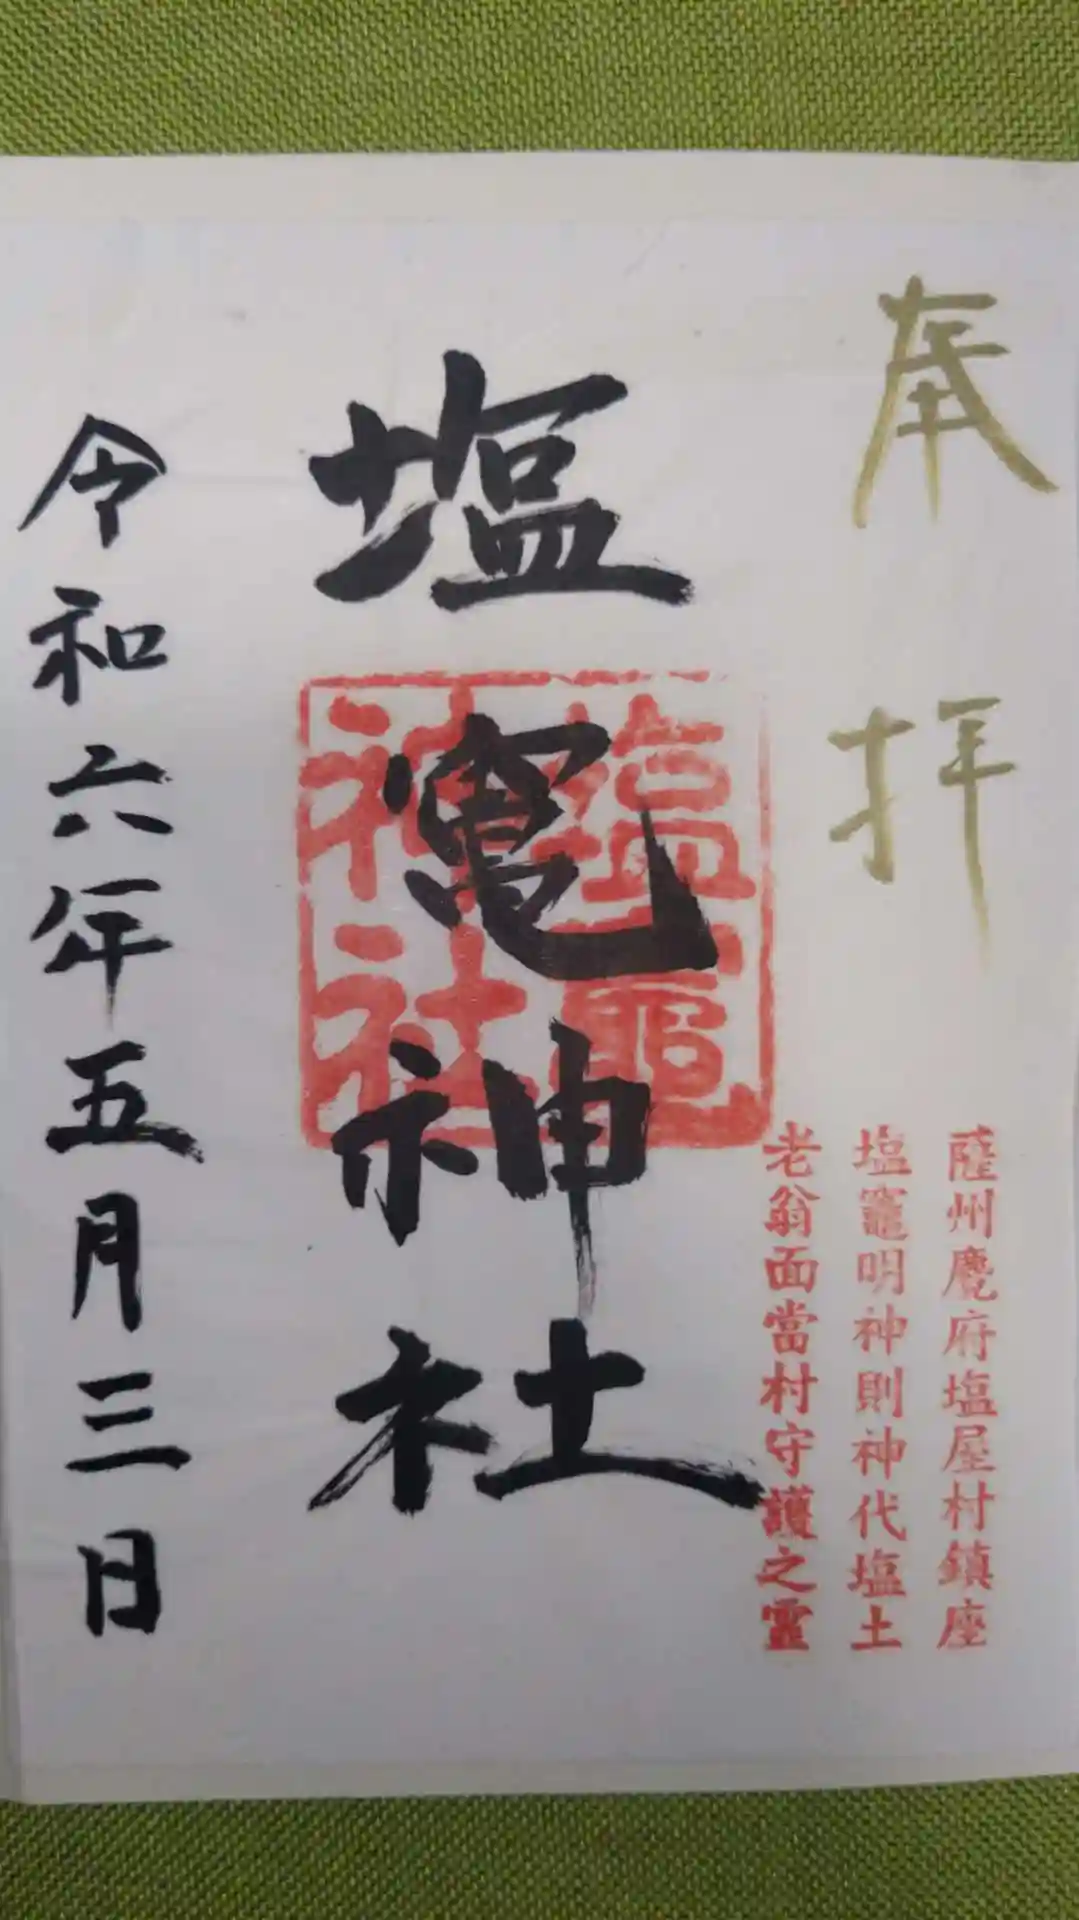 奉拝
薩州麑府塩屋村鎮座
塩竈明神則神代塩土
老翁面當村守護之靈
塩竃神社
塩竈
神社
令和六年五月三日